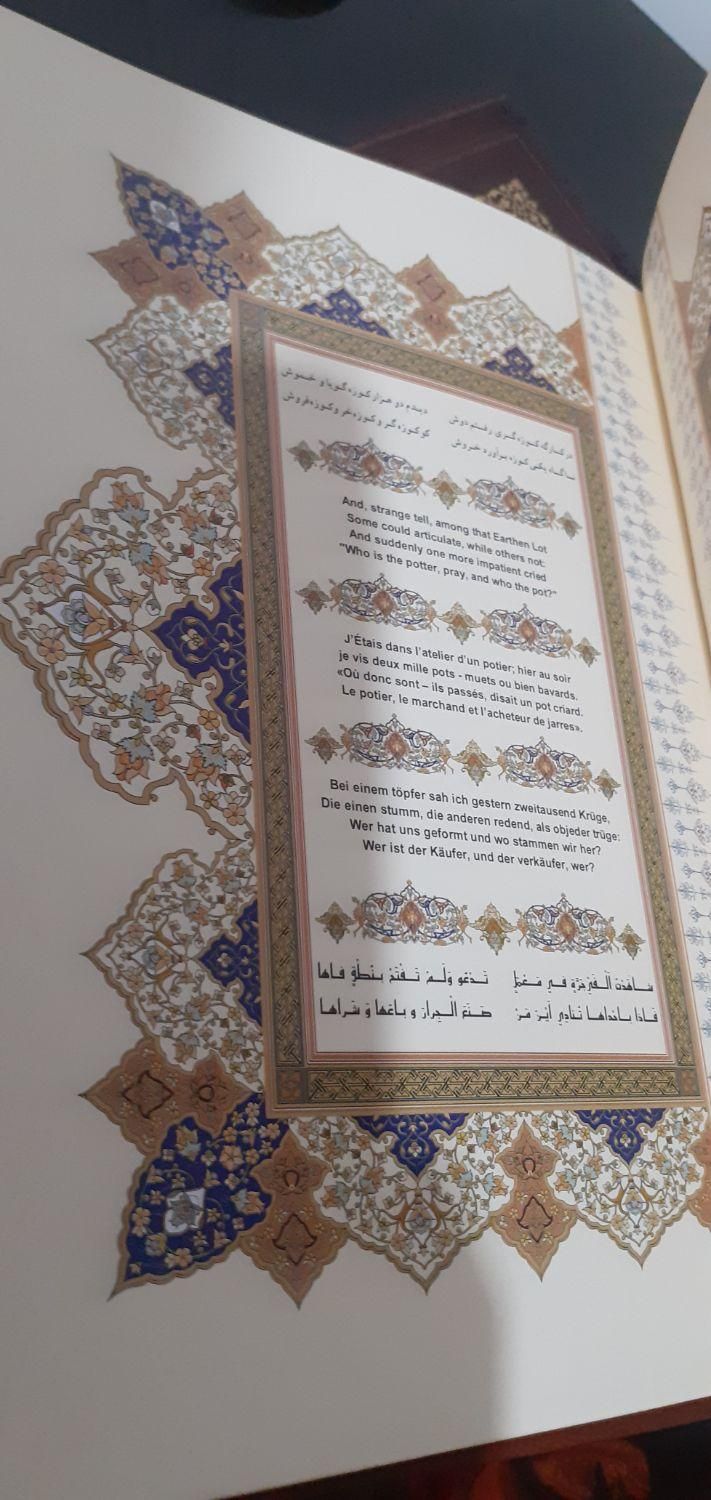 در کارگه کوزه‌گری رفتم دوش دیدم دو هزار کوزه گویا و خموش
ناگاه یکی کوزه برآورد خروش کو کوزه‌گر و کوزه‌خر و کوزه‌فروش
And, strange tell, among that Earthen Lot
Some could articulate, while others not:
And suddenly one more impatient cried
"Who is the potter, pray, and who the pot?"
J'Étais dans l'atelier d'un potier; hier au soir
je vis deux mille pots - muets ou bien bavards.
«Où donc sont – ils passés, disait un pot criard.
Le potier, le marchand et l'acheteur de jarres».
Bei einem töpfer sah ich gestern zweitausend Krüge,
Die einen stumm, die anderen redend, als objeder trüge:
Wer hat uns geformt und wo stammen wir her?
Wer ist der Käufer, und der verkäufer, wer?
شاهَدْتُ أَلْفَيْ جَرَّةٍ في مَعْمَلٍ تَدْعُو وَلَمْ تَفْتَحْ بِنُطْقٍ فاها
فَإِذا بِإِحْداها تُنادِي أَيْنَ مَنْ صَنَعَ الْجِرارَ و باعَها وَ شَراها